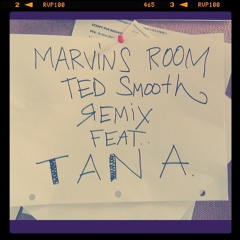 2 ◄ RVP100 465 3 ◄ RVP100
MARVINS ROOM
TED SMOOTH
REMIX
FEAT..
TAN A.